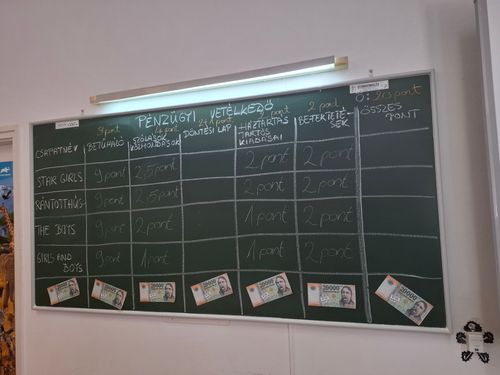 PÉNZÜGYI VETÉLKEDŐ
Ö: 2 pont
9 pont 4 pont 2+1 pont pont 2 pont
CSAPATNÉV BETŰHÁLÓ SZÓLÁSOK KÖZMONDÁSOK DÖNTÉSI LAP HÁZTARTÁS TARTÓS KIADÁSAI BEFEKTETÉSEK ÖSSZES PONT
STAR GIRLS 9 pont 2,5 pont 2 pont 2 pont
RÁNTOTTHÚS 9 pont 2,5 pont 2 pont 2 pont
THE BOYS 9 pont 2 pont 1 pont 2 pont
GIRLS AND BOYS 9 pont 1 pont 1 pont 2 pont
20000 20000 20000 20000 20000 20000 20000